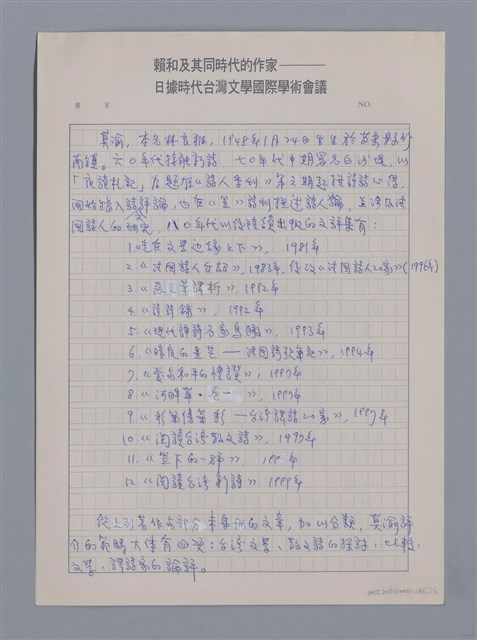 賴和及其同時代的作家
日據時代台灣文學國際學術會議
NO.
莫渝，本名林良雅，1948年1月24日出生於苗栗縣竹
南鎮。六〇年代接觸新詩，七〇年代中期署名白沙堤，以
開始踏入詩評論，也在《笠》詩刊撰述詩人論，並涉及法
國詩人的研究，八〇年代以後陸續出版的文評集有：
1.《走在文學邊緣上下》，1981年
2.《法國詩人介紹》，1983年，修改《法國詩人20家》(1996年)
3. 1992年
4.《讀詩錄》，1992年
5.《現代譯詩名家鳥瞰》，1993年
6. 法國詩欣賞》，1994年
7.《愛與和平的禮讚》，1997年
8.《河畔草 》，1997年
9. 台灣譯詩20家》，1997年
10.《閱讀台灣散文詩》，1997年
11.《笠下的一群》，199 年
12.《閱讀台灣新詩》，1999年
從上列著作與部分未集刊的文章，加以分類，莫渝評
介的範疇大體有四項：台灣文學、散文詩的探討、比較
文學、譯詩家的論評。